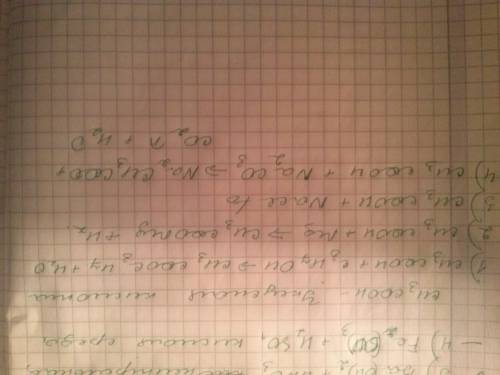 — 4) Fe₂(SO₄)₃ + H₂SO₄ кислая среда,
CH₃COOH - Уксусная кислота
1) CH₃COOH + C₂H₄OH → CH₃COOC₂H₄ + H₂O
2) CH₃COOH + Mg → CH₃COOMg + H₂
3) CH₃COOH + NaCl ≠
4) CH₃COOH + Na₂CO₃ → Na₂CH₃COO +
CO₂↑ + H₂O